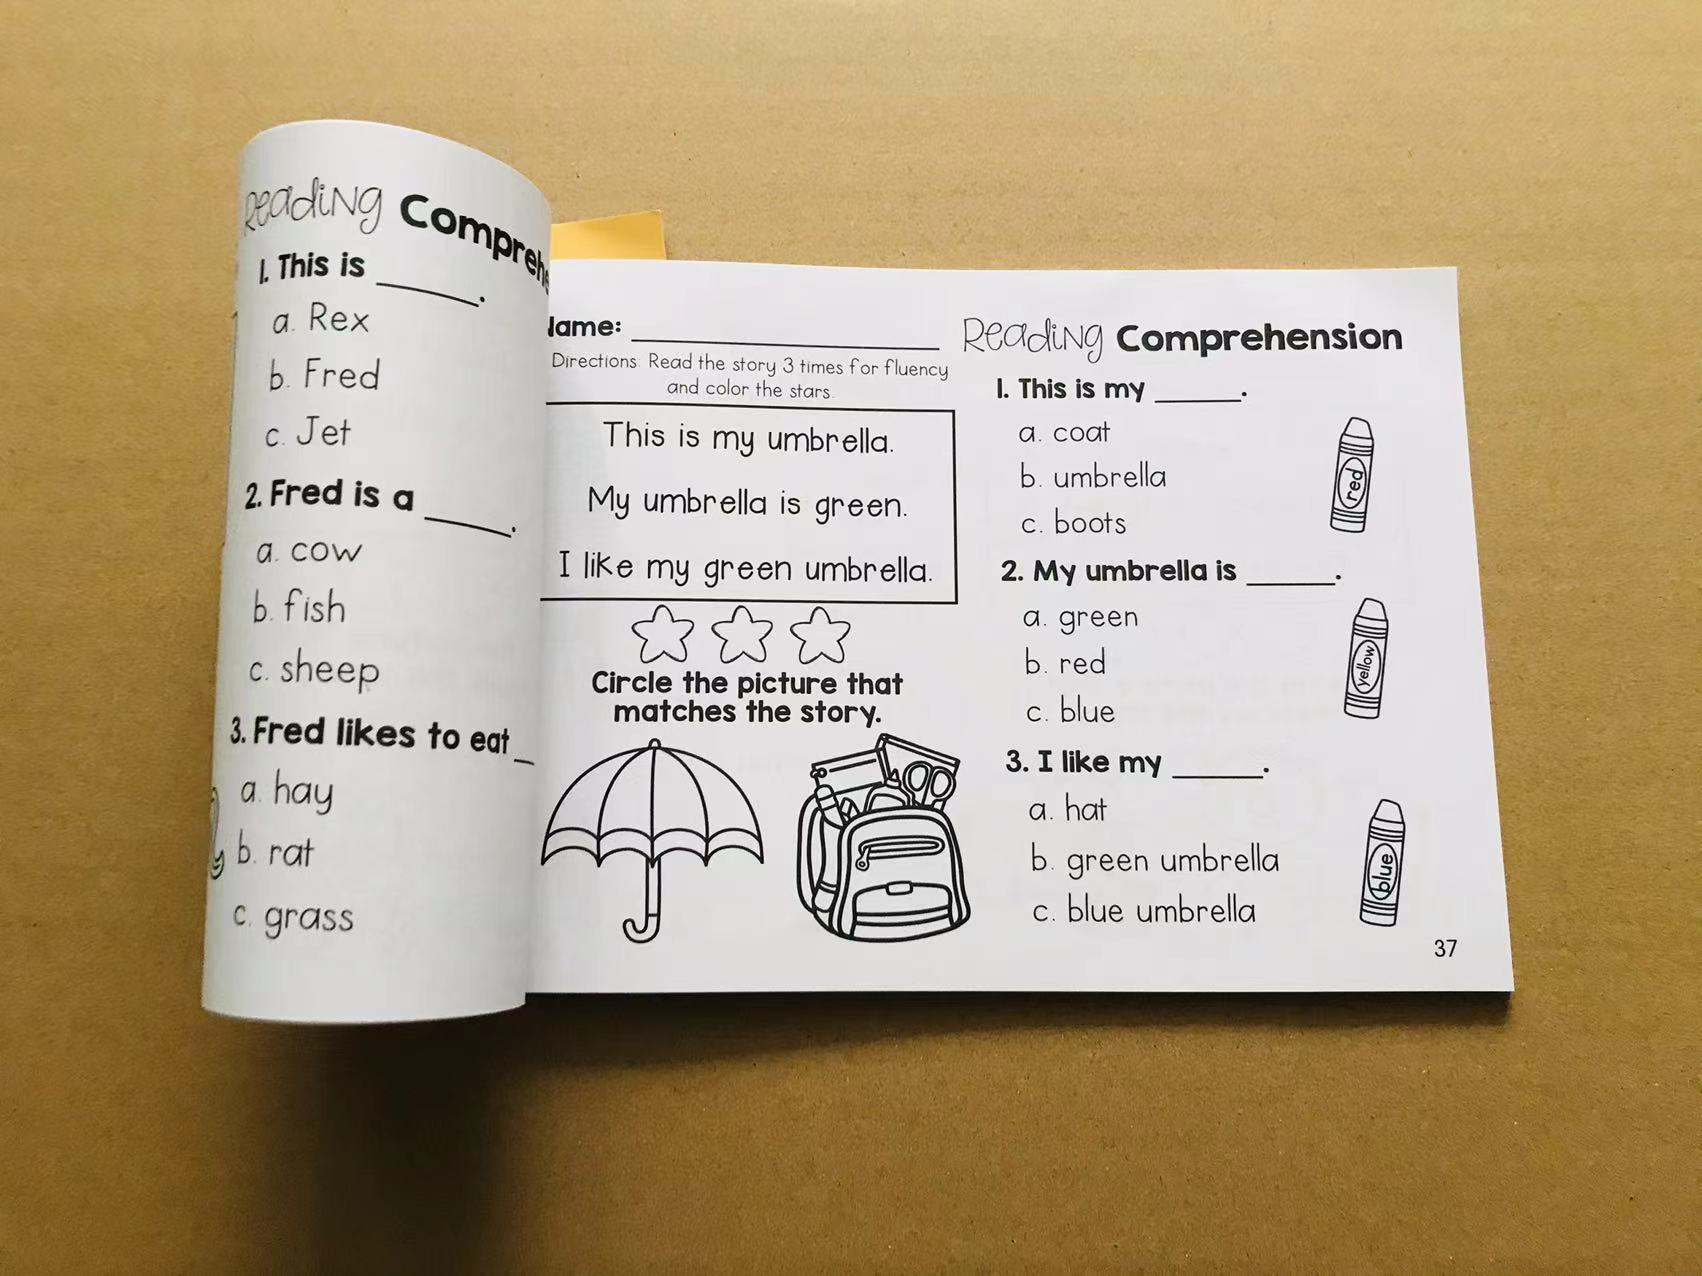 Reading
1. This is ______.
a. Rex
b. Fred
c. Jet
2. Fred is a ______.
a. cow
b. fish
c. sheep
3. Fred likes to eat _
a. hay
b. rat
c. grass
Name: ______
Directions: Read the story 3 times for fluency
and color the stars.
This is my umbrella.
My umbrella is green.
I like my green umbrella.
Circle the picture that
matches the story.
Reading Comprehension
1. This is my ______.
a. coat
b. umbrella
c. boots
red
2. My umbrella is ______.
a. green
b. red
c. blue
yellow
3. I like my ______.
a. hat
b. green umbrella
c. blue umbrella
blue
37